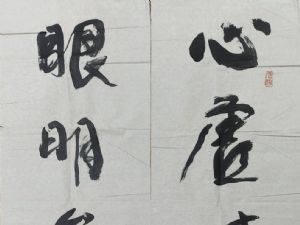 心虚
眼明